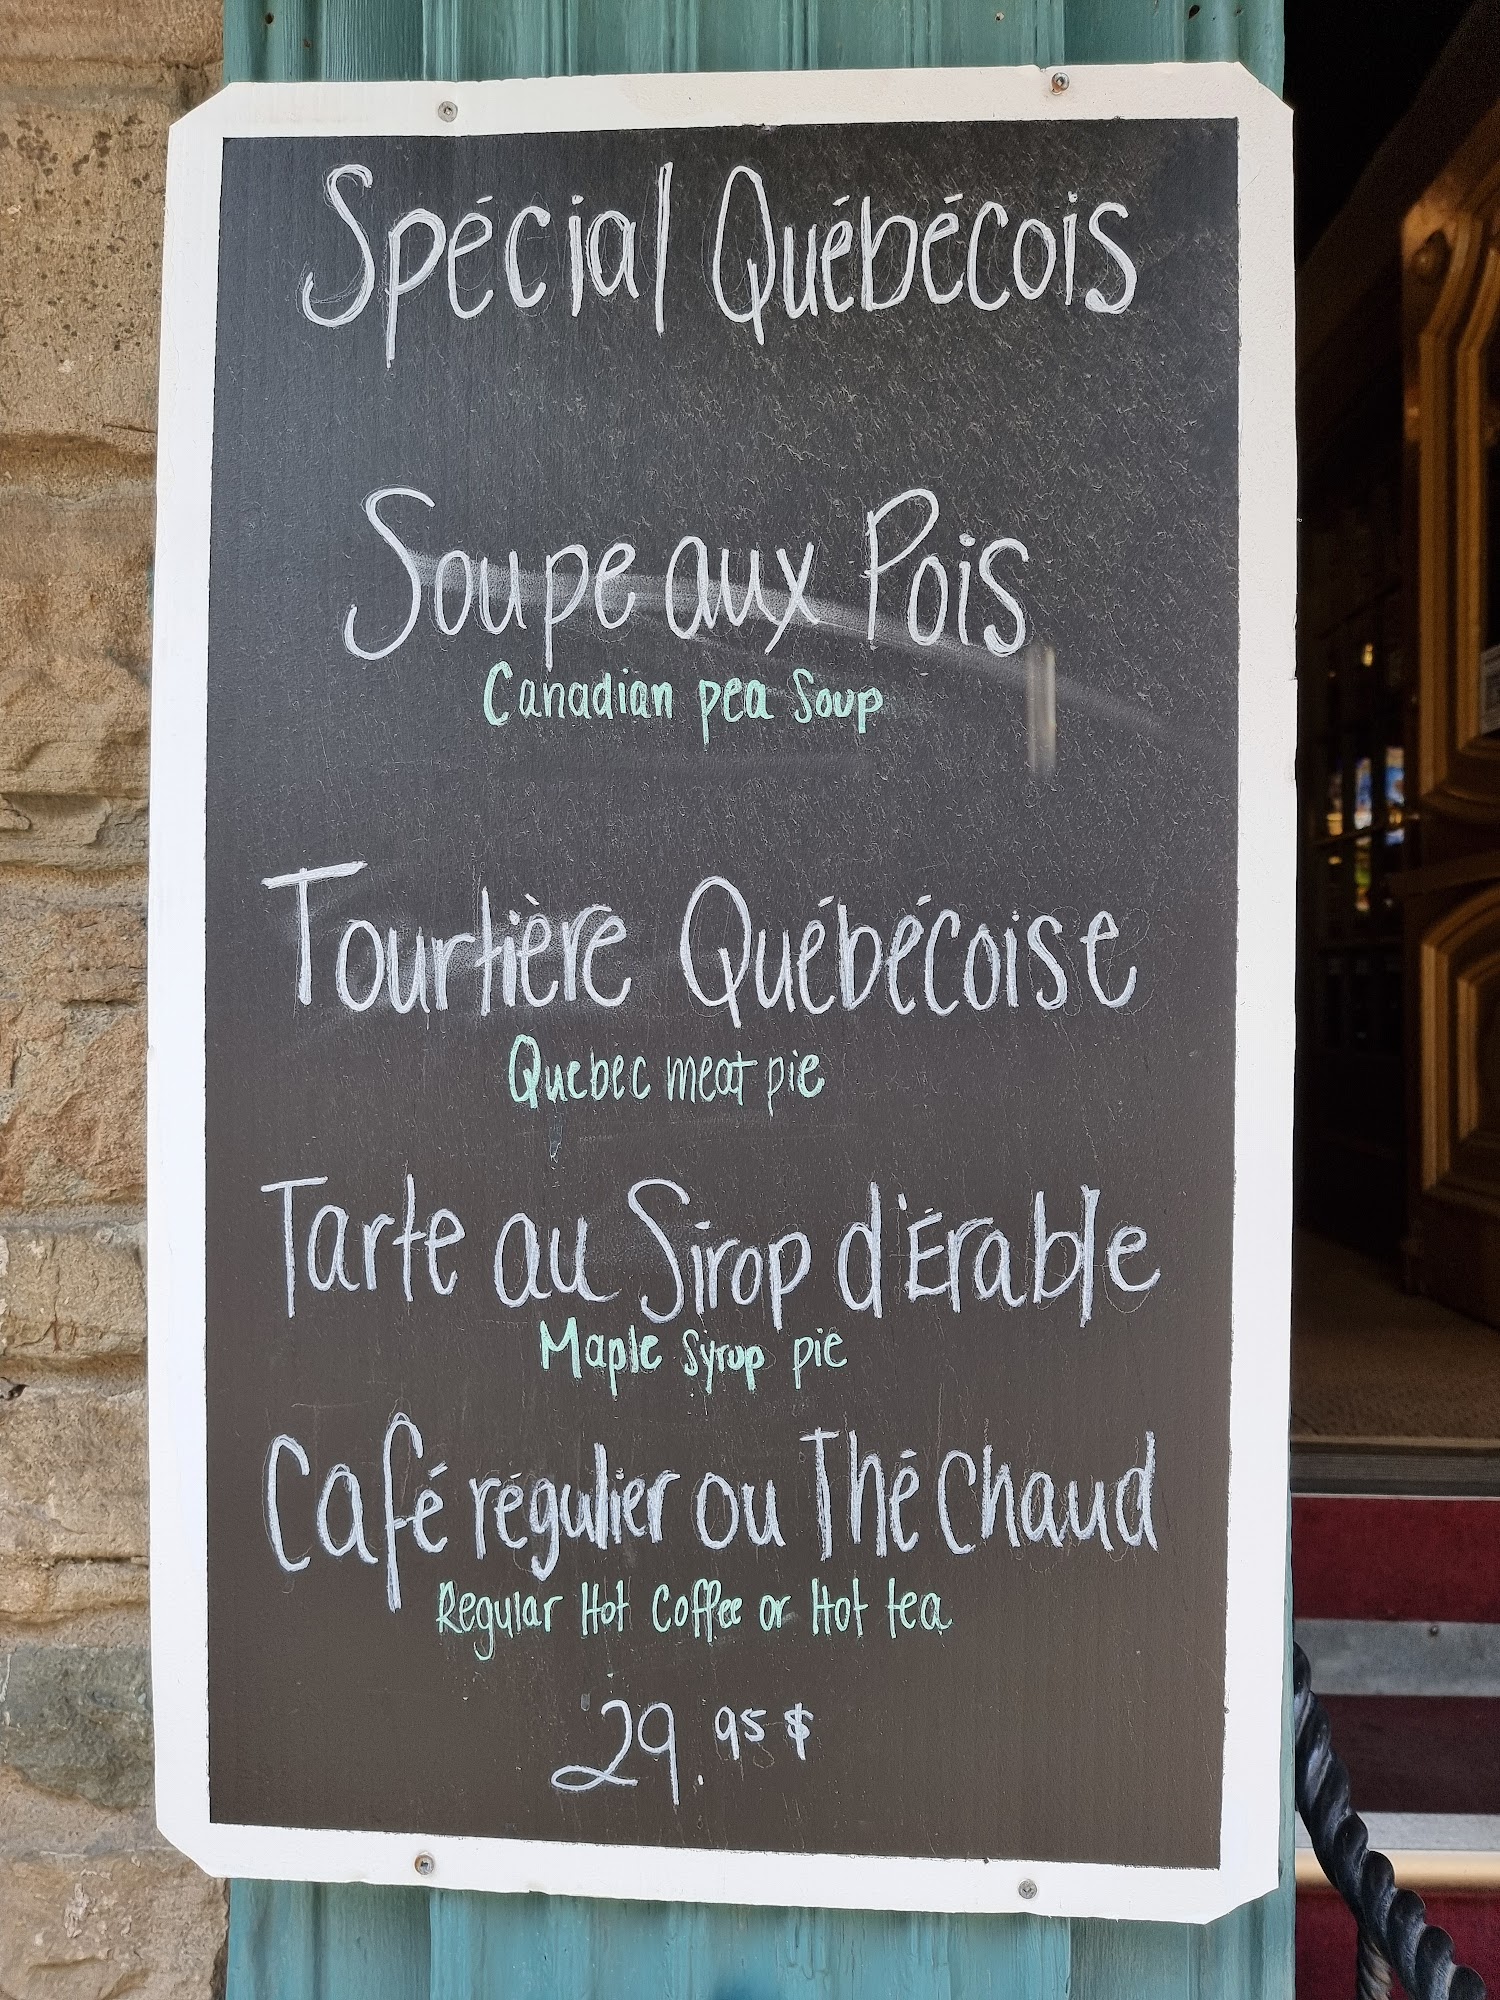 Spécial Québécois
Soupe aux Pois
Canadian pea Soup
Tourtière Québécoise
Quebec meat pie
Tarte au Sirop d'Érable
Maple Syrup pie
Café régulier ou Thé Chaud
Regular Hot Coffee or Hot tea
29.95$